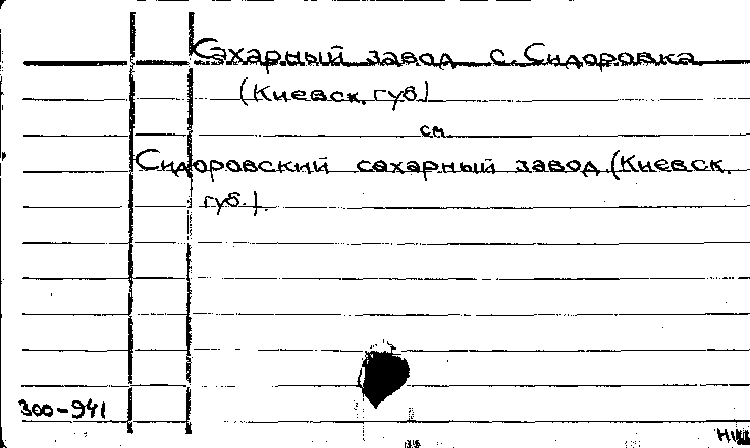 Сахарный завод с. Сидоровка
(Киевск. губ.)
см.
Сидоровский сахарный завод (Киевск.
губ.).
300-941
НШ